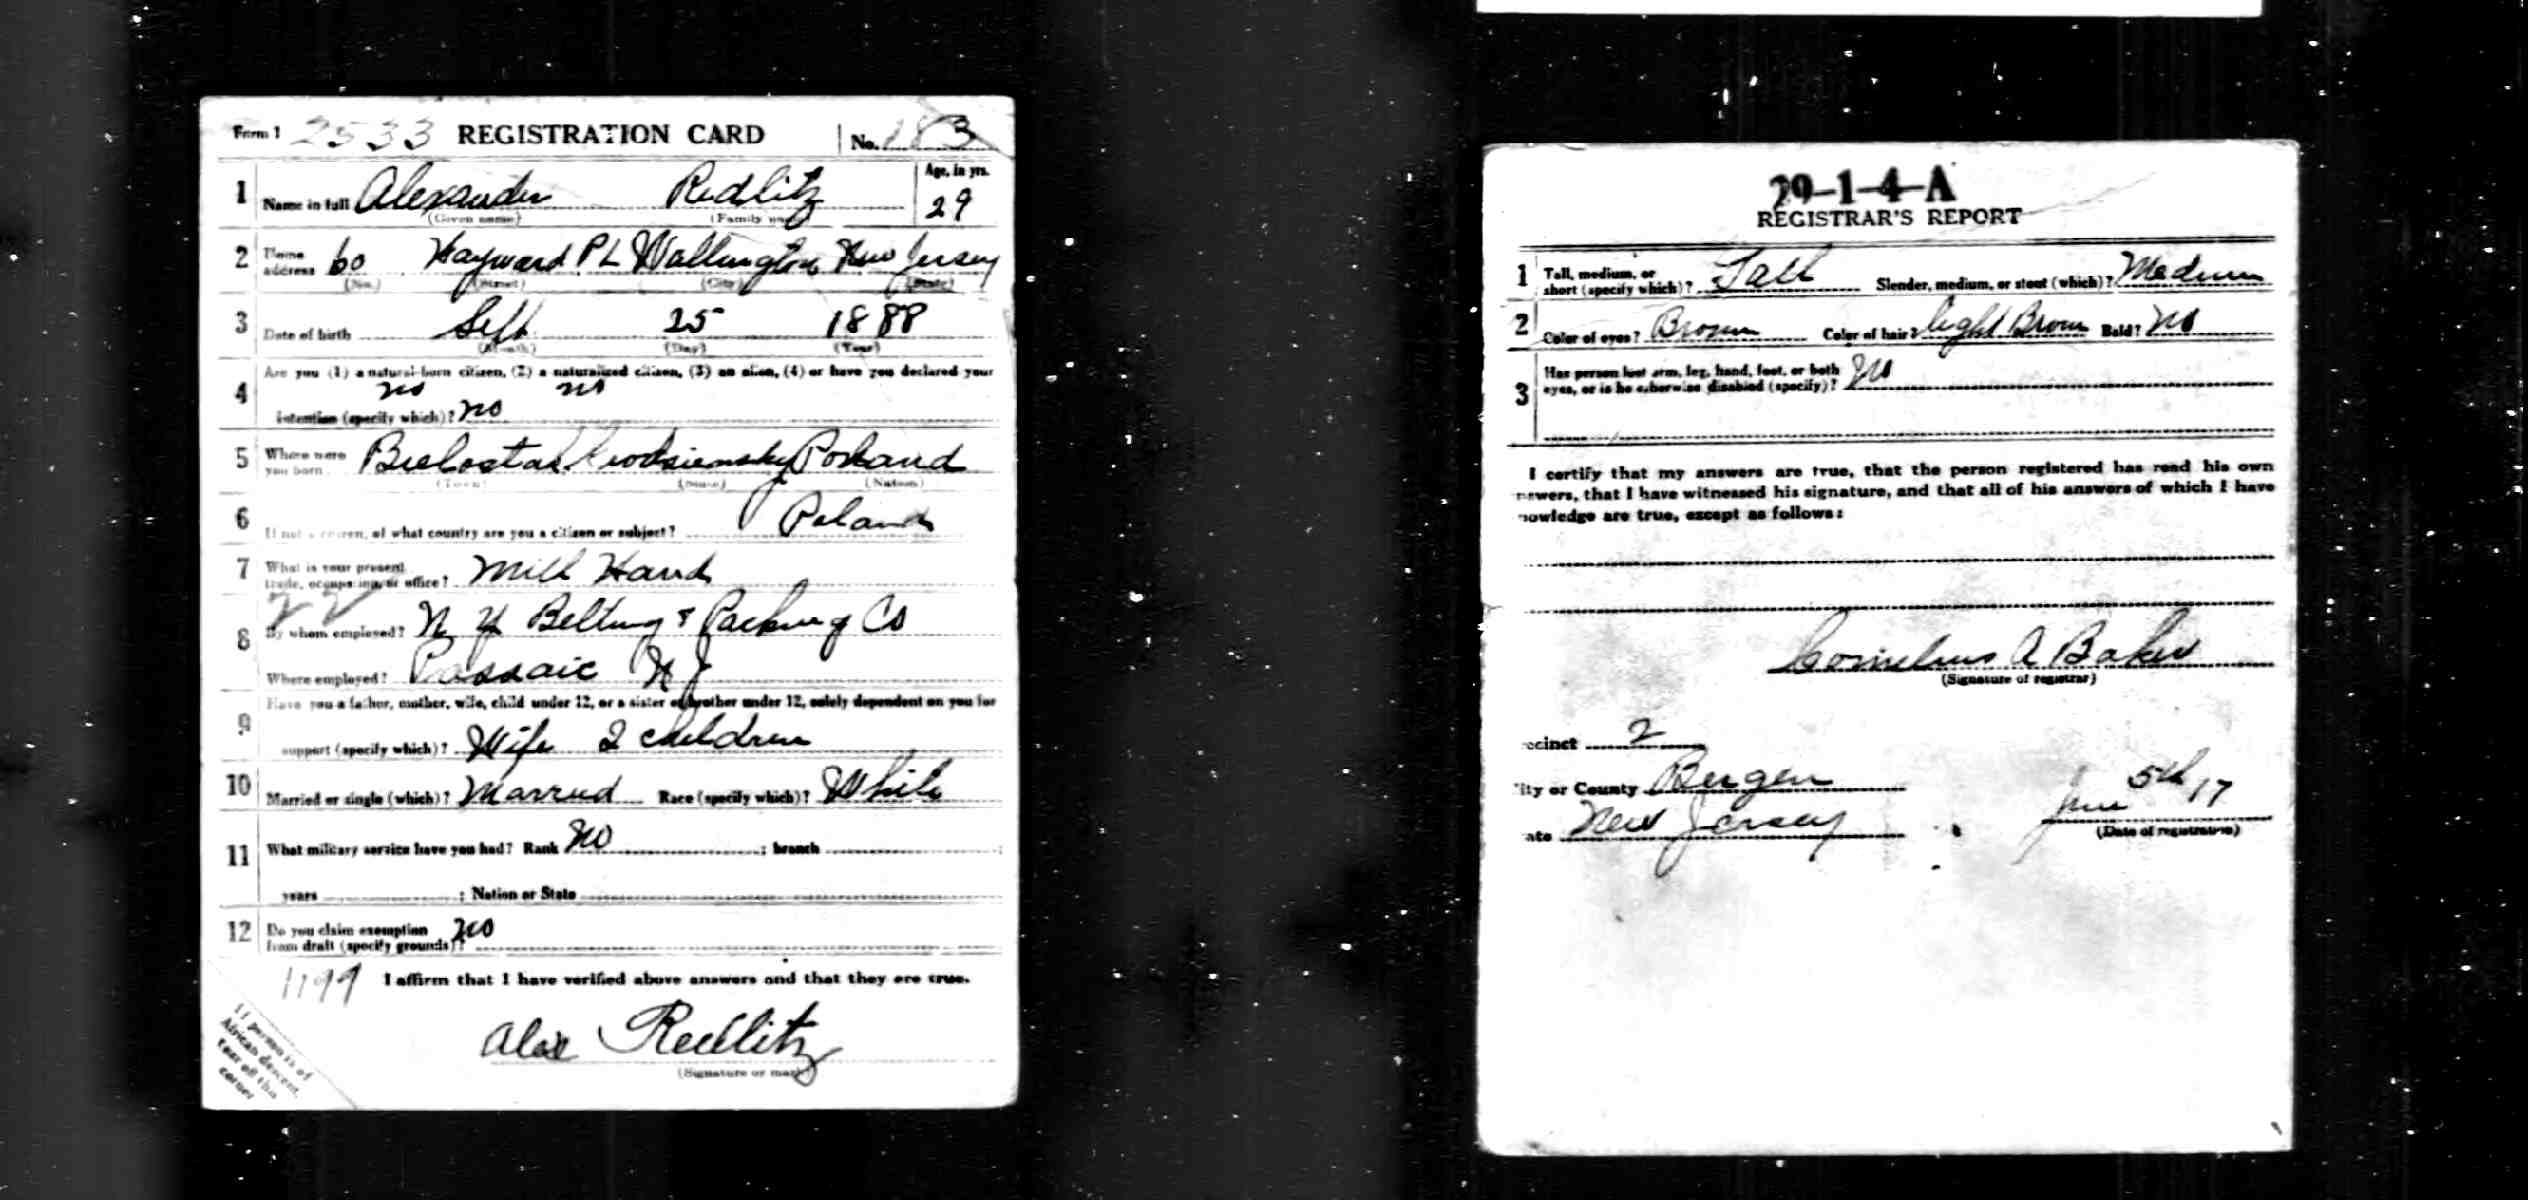 Form 1 2533 REGISTRATION CARD No. 183
1 Name in full Alexander Redlitz Age, in yrs. 29
(Given name) (Family name)
2 Home address 60 Hayward PL Wallington New Jersey
(No.) (Street) (City) (State)
3 Date of birth Sept 25 1888
(Month) (Day) (Year)
4 Are you (1) a natural-born citizen, (2) a naturalized citizen, (3) an alien, (4) or have you declared your
no no
intention (specify which)? no
5 Where were you born Poland
(Town) (State) (Nation)
6 If not a citizen, of what country are you a citizen or subject? Poland
7 What is your present trade, occupation, or office? Mill Hand
8 By whom employed? N Y Belting & Packing Co
Where employed? Passaic N J
9 Have you a father, mother, wife, child under 12, or a sister or brother under 12, solely dependent on you for
support (specify which)? Wife 2 children
10 Married or single (which)? Married Race (specify which)? White
11 What military service have you had? Rank No ; branch ;
years ; Nation or State
12 Do you claim exemption
from draft (specify grounds)? No
1199 I affirm that I have verified above answers and that they are true.
Alex Redlitz
(Signature or mark)
If person is of
African descent,
tear off this
corner
29-1-4-A
REGISTRAR'S REPORT
1 Tall, medium, or
short (specify which)? Tall Slender, medium, or stout (which)? Medium
2 Color of eyes? Brown Color of hair? light Brown Bald? No
3 Has person lost arm, leg, hand, foot, or both
eyes, or is he otherwise disabled (specify)? No
I certify that my answers are true, that the person registered has read his own
nswers, that I have witnessed his signature, and that all of his answers of which I have
nowledge are true, except as follows:
Cornelius A Baker
(Signature of registrar)
ecinct 2
ity or County Bergen June 5th 17
ate New Jersey (Date of registration)